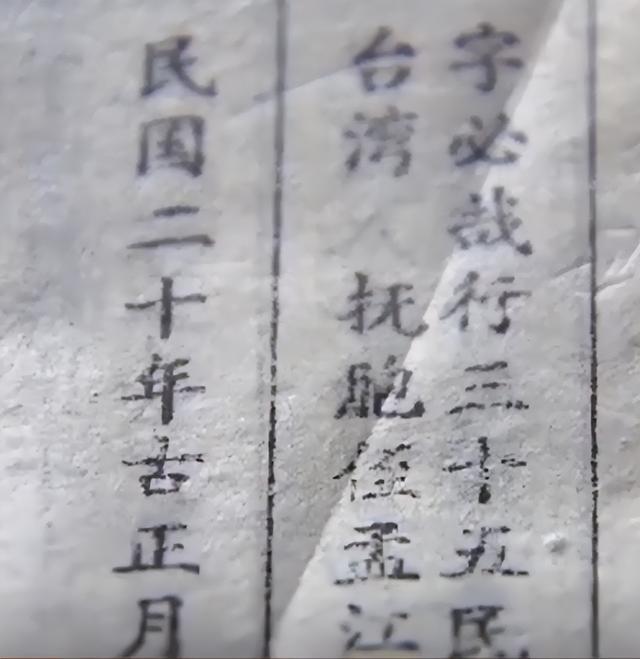 字必哉行三十五民
台湾人抚胞侄孟江
民国二十年古正月